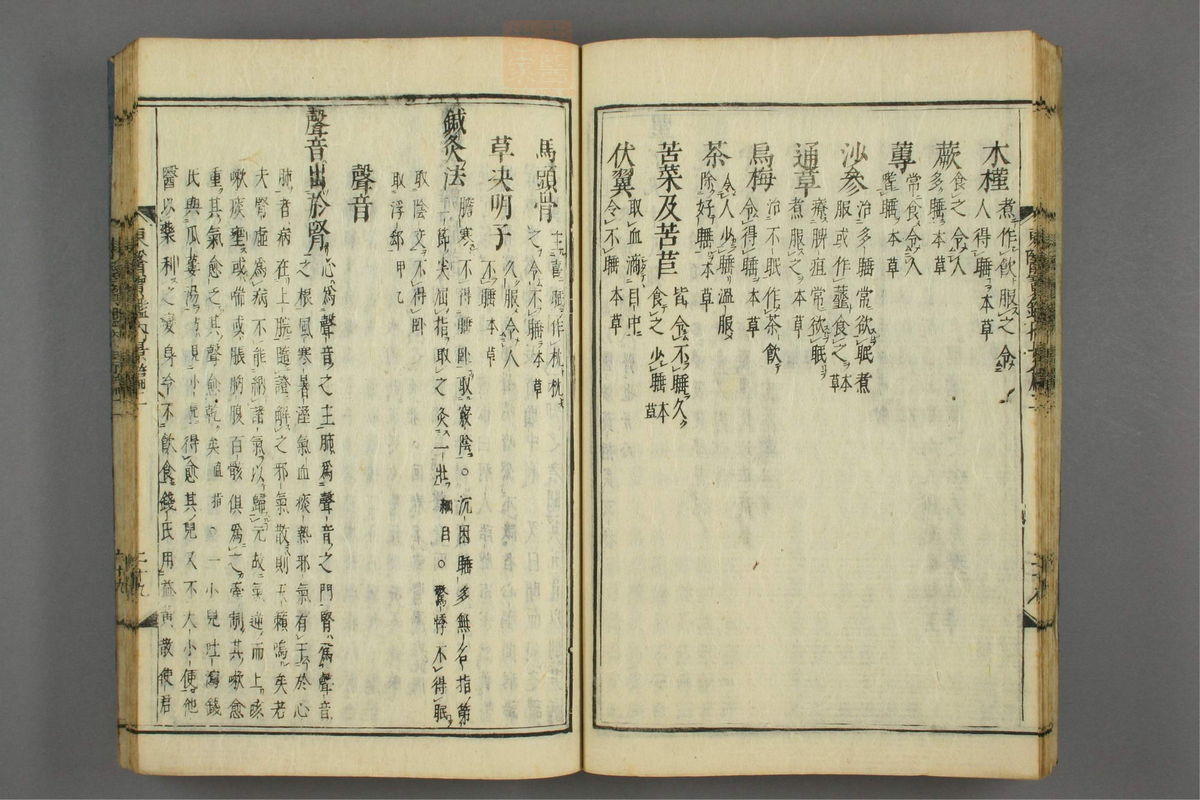 木槿
煮作飲服之令
人得睡本草
蕨
食之令人
多睡本草
蓴
常食令人
嗜睡本草
沙參
治多睡常欲眠煮
服或作虀食之本草
通草
療脾疸常欲眠
煮服之本草
烏梅
治不眠作茶飲
令得睡本草
茶
令人少睡溫服
除好睡本草
苦菜及苦苣
皆令不睡久
食之少睡本草
伏翼
取血滴目中
令不睡本草
馬頭骨
主喜睡作枕枕
之令不睡本草
草决明子
久服令人
不睡本草
鍼灸法
膽寒不得睡臥取竅陰○沉困睡多無名指第
二節尖屈指取之灸一壯綱目○驚悸不得眠
取陰交不得臥
取浮郄甲乙
聲音
聲音出於腎
心爲聲音之主肺爲聲音之門腎爲聲音
之根風寒暑濕氣血痰熱邪氣有干於心
肺者病在上脘隨證解之邪氣散則天籟鳴矣若
夫腎虛爲病不能納諸氣以歸元故氣逆而上咳
嗽痰壅或喘或脹胸腹百骸俱爲之牽制其嗽愈
重其氣愈乏其聲愈乾矣直指○一小兒吐瀉錢
氏與瓜蔞湯
得愈其兒又不大小便他
醫以藥利之
身冷不飲食錢氏用益黃散使君